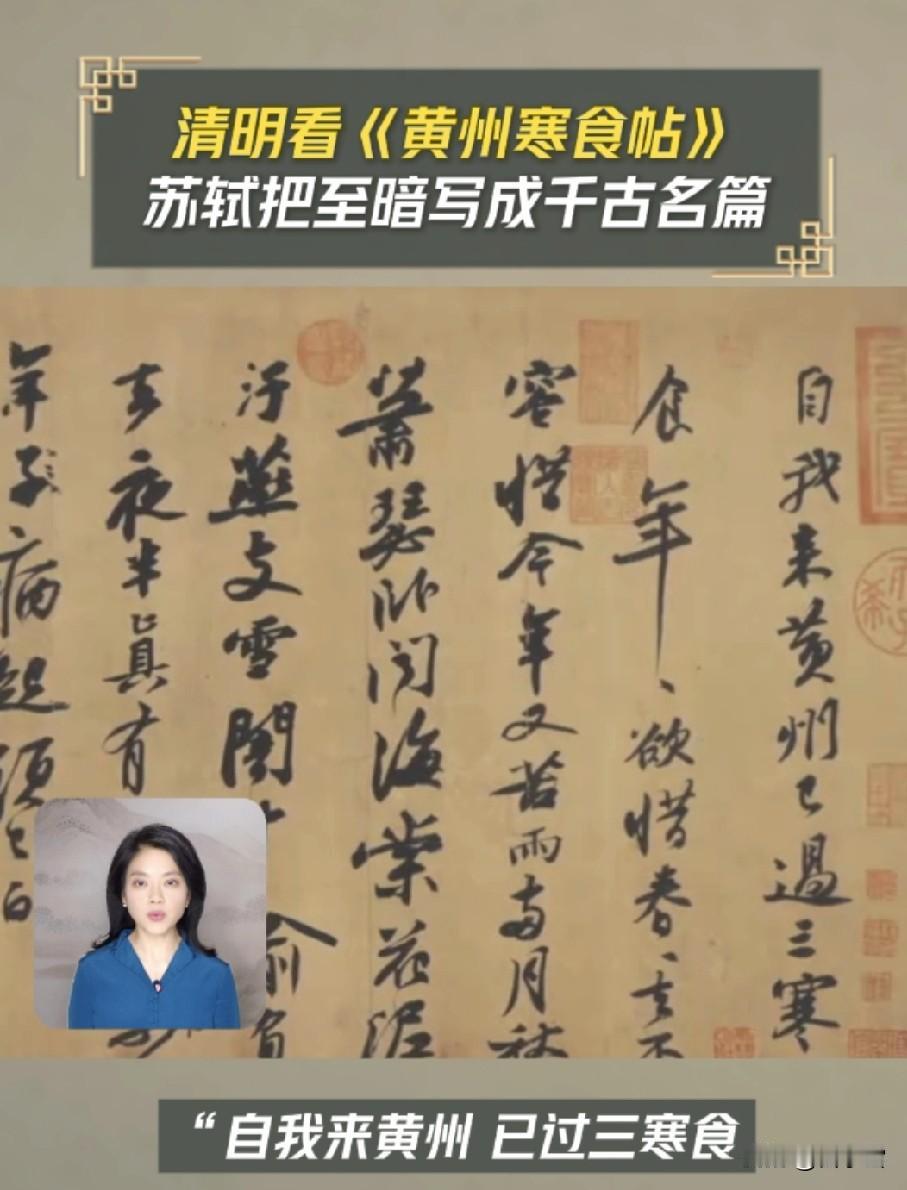 清明看《黄州寒食帖》
苏轼把至暗写成千古名篇
自我来黄州已過三寒
食年、欲惜春、去不
容惜今年又苦雨兩月秋
蕭瑟卧聞海棠花泥
汙燕支雪闇偷負
去夜半真有
年子病起頭已白
“自我来黄州 已过三寒食